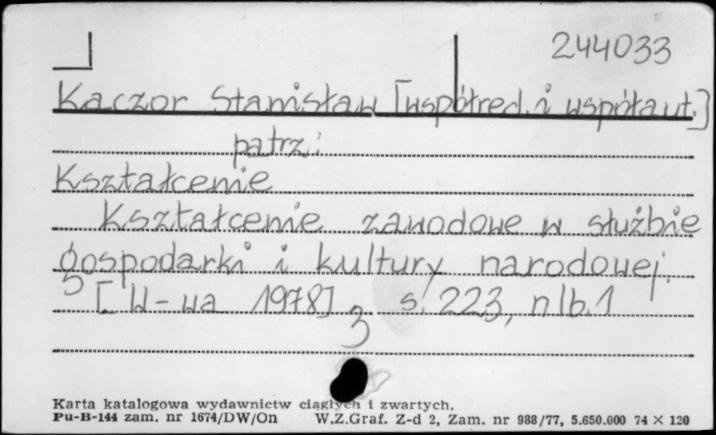 244033
Kaczor Stanisław [współred. i współaut.]
patrz:
Kształcenie
Kształcenie zawodowe w służbie
gospodarki i kultury narodowej.
[W-wa 1978] s. 223, nlb. 1
3
Karta katalogowa wydawnictw ciągłych i zwartych.
Pu-B-144 zam. nr 1674/DW/On W.Z.Graf. Z-d 2, Zam. nr 988/77, 5.650.000 74 × 120